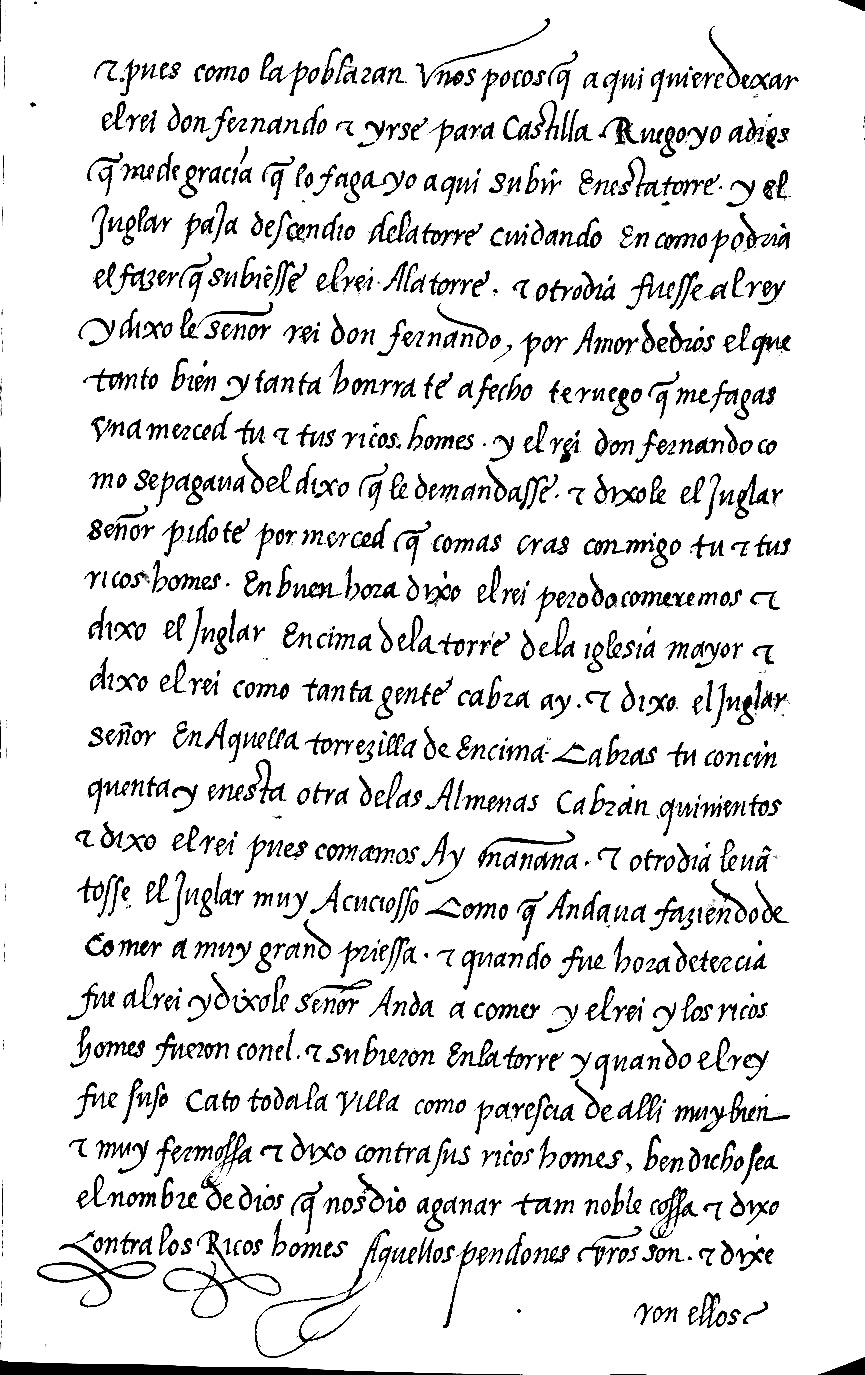 ⁊ pues como la poblaran Vnos pocos q̃ aqui quiere dexar
el rei don fernando ⁊ yrse para Castilla. Ruego yo a dios
q̃ me de gracia q̃ lo faga yo aqui subir En esta torre. y el
Juglar paja descendio de la torre cuidando En como podria
el fazer q̃ subiesse el rei A la torre. ⁊ otro dia fuesse al rey
y dixole señor rei don fernando, por Amor de dios el que
tanto bien y tanta honrra te a fecho te ruego q̃ me fagas
Vna merced tu ⁊ tus ricos homes. y el rei don fernando co
mo se pagaua del dixo q̃ le demandasse. ⁊ dixole el Juglar
señor pidote por merced q̃ comas cras conmigo tu ⁊ tus
ricos homes. En buen hora dixo el rei pero do comeremos ⁊
dixo el Juglar Encima de la torre de la iglesia mayor ⁊
dixo el rei como tanta gente cabra ay. ⁊ dixo el Juglar
señor En Aquella torrezilla de Encima Cabras tu con cin
quenta y en esta otra de las Almenas Cabran quinientos
⁊ dixo el rei pues comamos Ay mañana. ⁊ otro dia leuã
tosse el Juglar muy Acuciosso Como q̃ Andaua faziendo de
Comer a muy grand priessa. ⁊ quando fue hora de tercia
fue al rei y dixole señor Anda a comer y el rei y los ricos
homes fueron con el. ⁊ subieron En la torre y quando el rey
fue suso Cato toda la Villa como parescia de alli muy bien
⁊ muy fermossa ⁊ dixo contra sus ricos homes, bendicho sea
el nombre de dios q̃ nos dio a ganar tam noble cossa ⁊ dixo
Contra los Ricos homes Aquellos pendones vr̃os son. ⁊ dixe
ron ellos